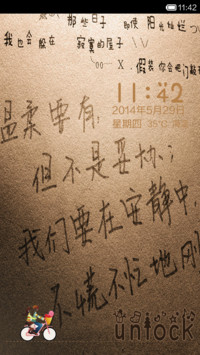 11:42
那些日子 即使阳光灿烂
我也会躲在 寂寞的屋子
假装你会
11:42
2014年5月29日
星期四 35℃
温柔要有
但不是妥协;
我们要在安静中,
不慌不忙地刚
unlock